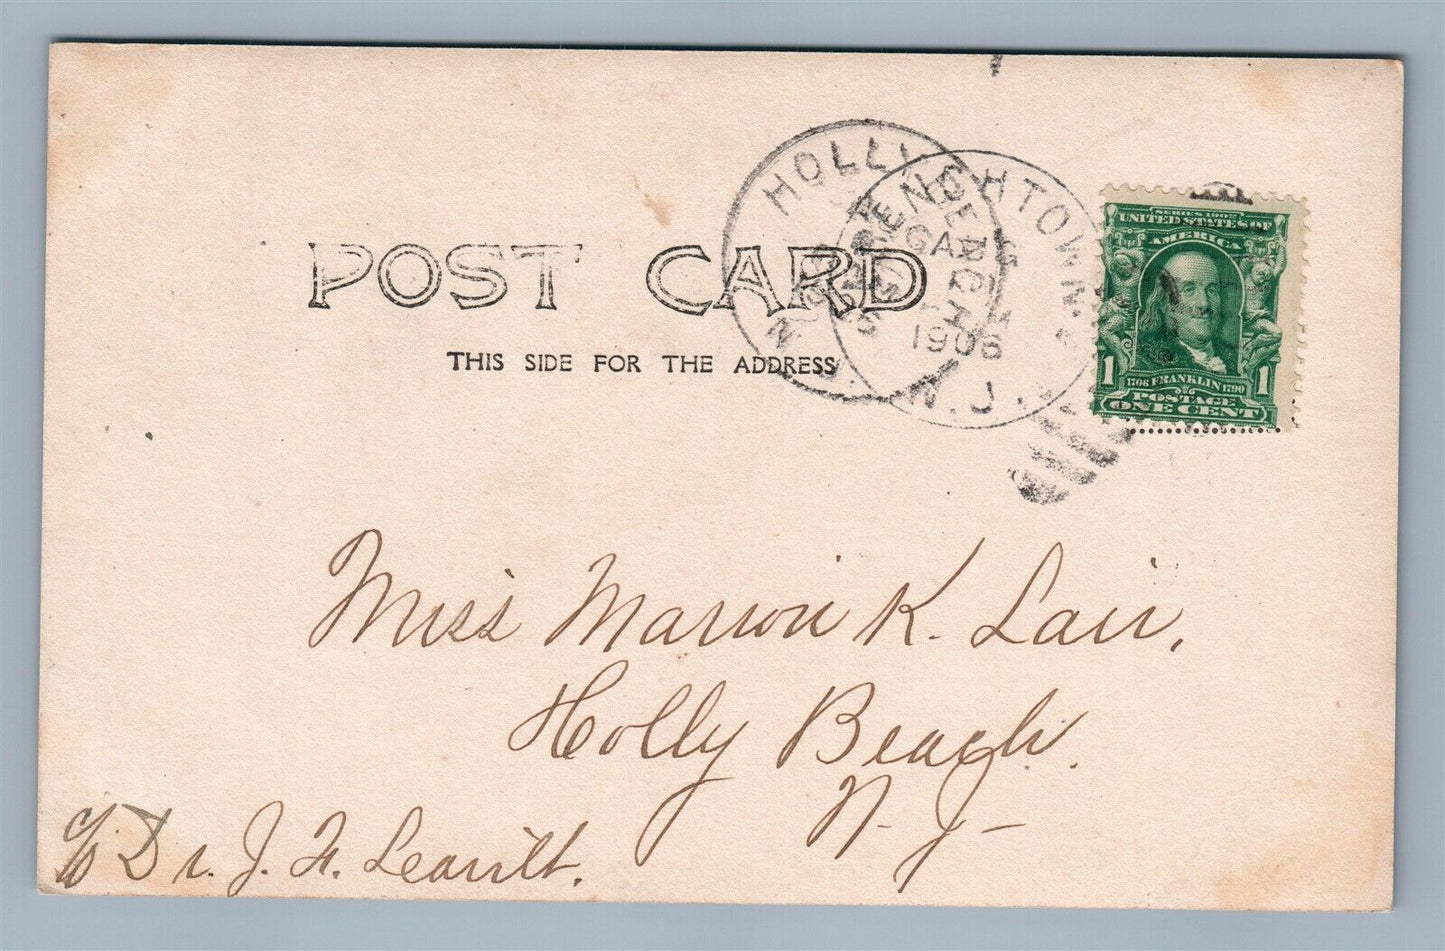 POST CARD
THIS SIDE FOR THE ADDRESS
HOLLY
N.J.
FRENCHTOWN.
AUG
1906
N.J.
SERIES 1902
UNITED STATES OF
AMERICA
1 1
1706 FRANKLIN 1790
POSTAGE
ONE CENT
Miss Marion K. Lair,
Holly Beach.
N. J-
c/o Dr. J. F. Leavitt.